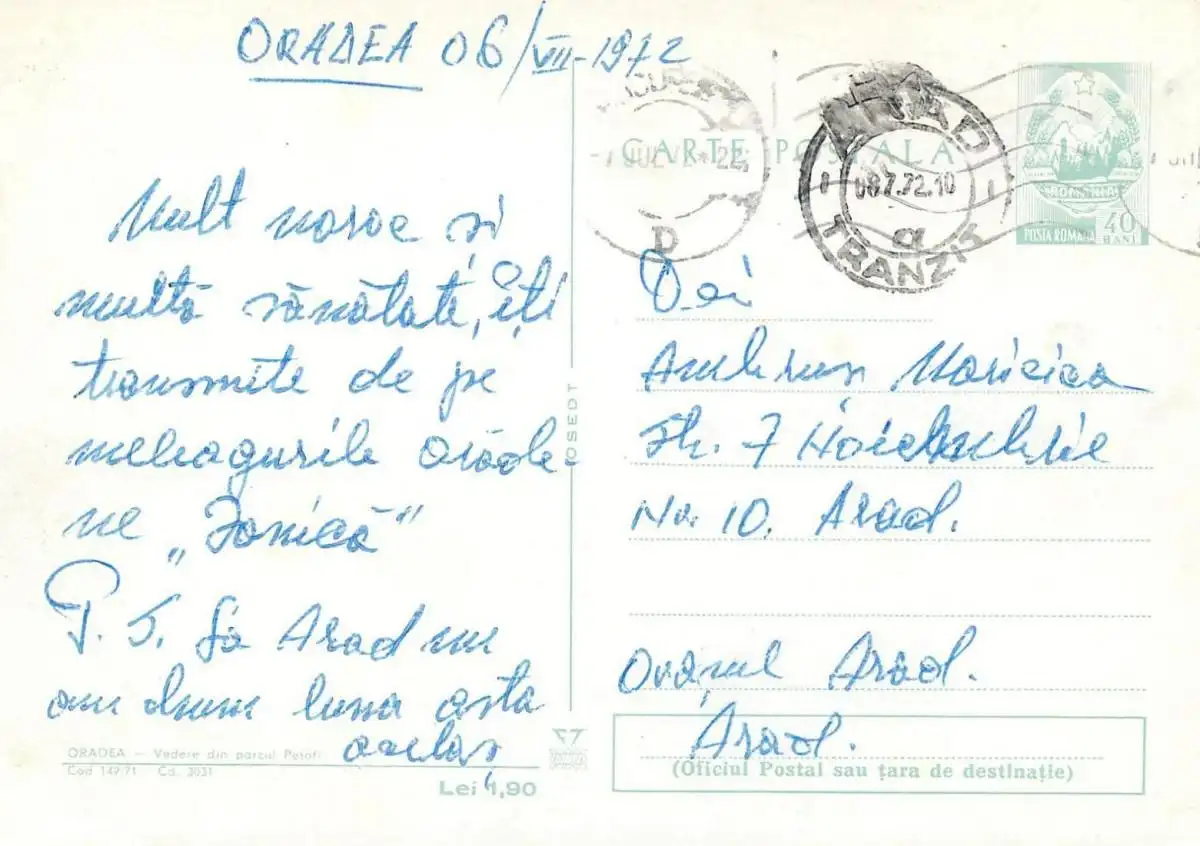 ORADEA 06/VII-1972
Mult noroc și
multă sănătate, îți
transmite de pe
meleagurile orăde-
ne „Ionică"
P.S. La Arad nu
am drum luna asta
același
ORADEA — Vedere din parcul Petöfi
Cod 149/71 Cd. 3031
Lei 1,90
OSEDT
CARTE POSTALA
ARAD
08.7.72.10
TRANZIT
D
22
ROMANIA
POSTA ROMANA
40
BANI
D-ei
Ambruș Maricica
Str. 7 Noiembrie
Nr. 10. Arad.
Orașul Arad.
Arad.
(Oficiul Postal sau țara de destinație)